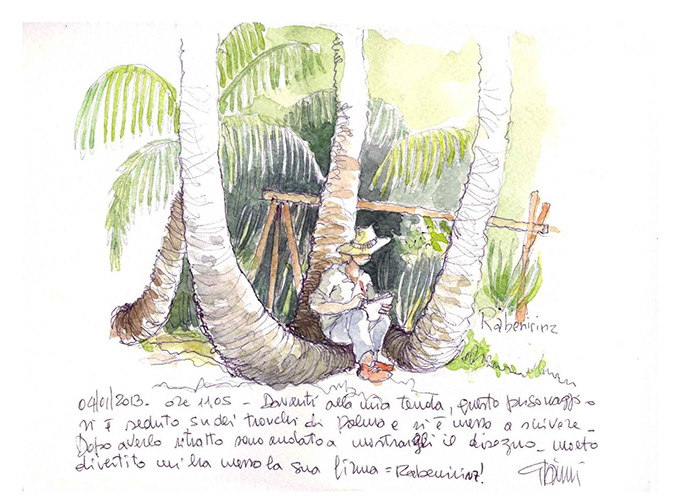 Rabenirinz
04/01/2013. ore 11,05 - Davanti alla mia tenda, questo personaggio
si è seduto su dei tronchi di Palma e si è messo a scrivere.
Dopo averlo ritratto sono andato a mostrargli il disegno - molto
divertito mi ha messo la sua firma = Rabenirinz!